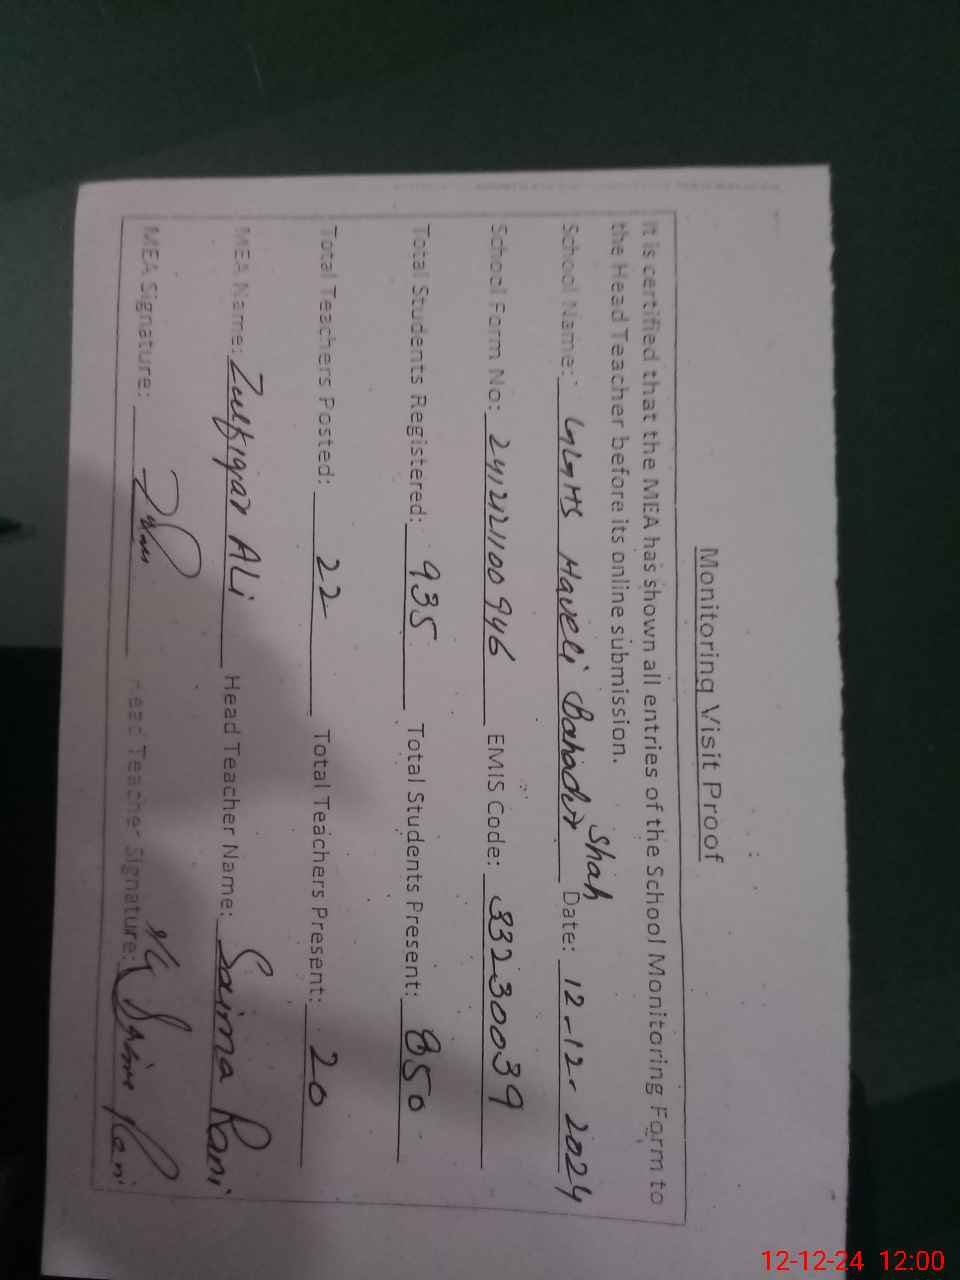 Monitoring Visit Proof
It is certified that the MEA has shown all entries of the School Monitoring Form to
the Head Teacher before its online submission.
School Name: GGHS Haveli Bahadur Shah Date: 12-12-2024
School Form No: 241212100946 EMIS Code: 33230039
Total Students Registered: 935 Total Students Present: 850
Total Teachers Posted: 22 Total Teachers Present: 20
MEA Name: Zulfiqar ALi Head Teacher Name: Saima Rani
MEA Signature: Head Teacher Signature: Saima Rani
12-12-24 12:00